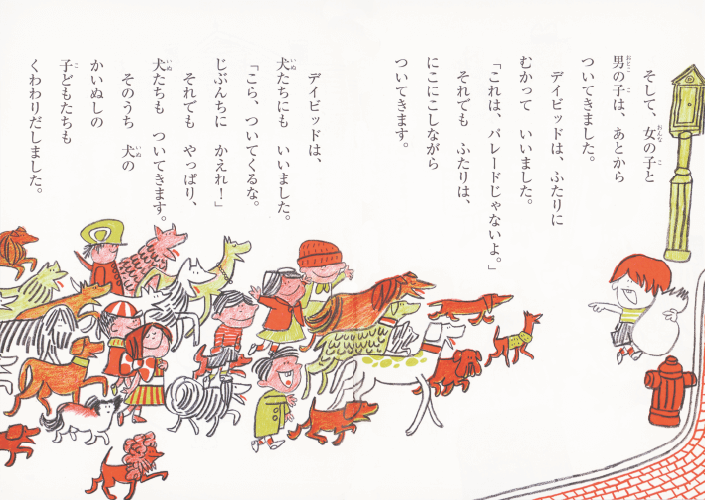 そして、女の子と
男の子は、あとから
ついてきました。
デイビッドは、ふたりに
むかって いいました。
「これは、パレードじゃないよ。」
それでも ふたりは、
にこにこしながら
ついてきます。
デイビッドは、
犬たちにも いいました。
「こら、ついてくるな。
じぶんちに かえれ!」
それでも やっぱり、
犬たちも ついてきます。
そのうち 犬の
かいぬしの
子どもたちも
くわわりだしました。